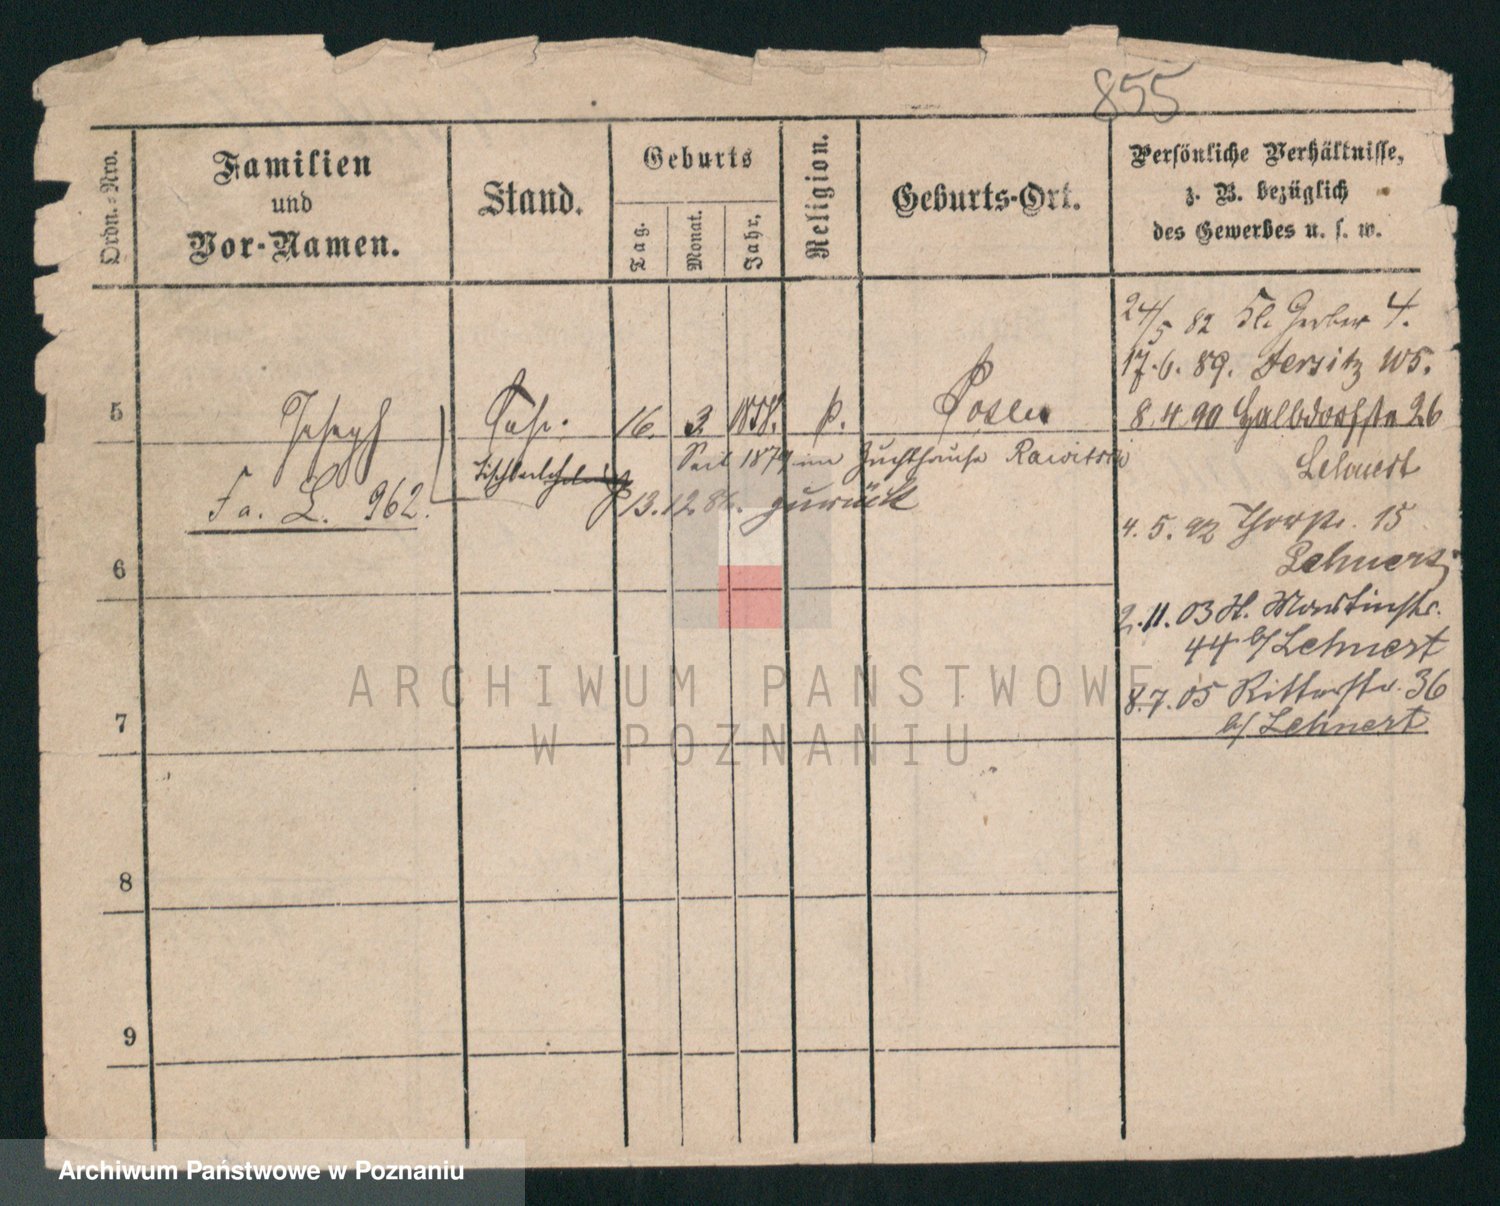 855
Ordn.-Nro.
Familien
und
Vor-Namen.
Stand.
Geburts
Tag.
Monat.
Jahr.
Religion.
Geburts-Ort.
Persönliche Verhältnisse,
z. B. bezüglich
des Gewerbes u. s. w.
24/5 82 Kl. Gerber 4.
17.6. 89. Jersitz W5.
5 Joseph Sohn. 16. 3. 1858. k. Posen
8.4.90 Halbdorfstr 26
Seit 1879 im Zuchthause Rawitsch
Lehnert
Tischlerlehrling
Fa. L. 962.
13.12.86. zurück
4. 5. 92 Thorstr. 15
Lehnert
6
2.11.03 H. Martinstr.
44 b/Lehnert
8.7.05 Ritterstr. 36
b/Lehnert
7
8
9
ARCHIWUM PAŃSTWOWE
W POZNANIU
Archiwum Państwowe w Poznaniu